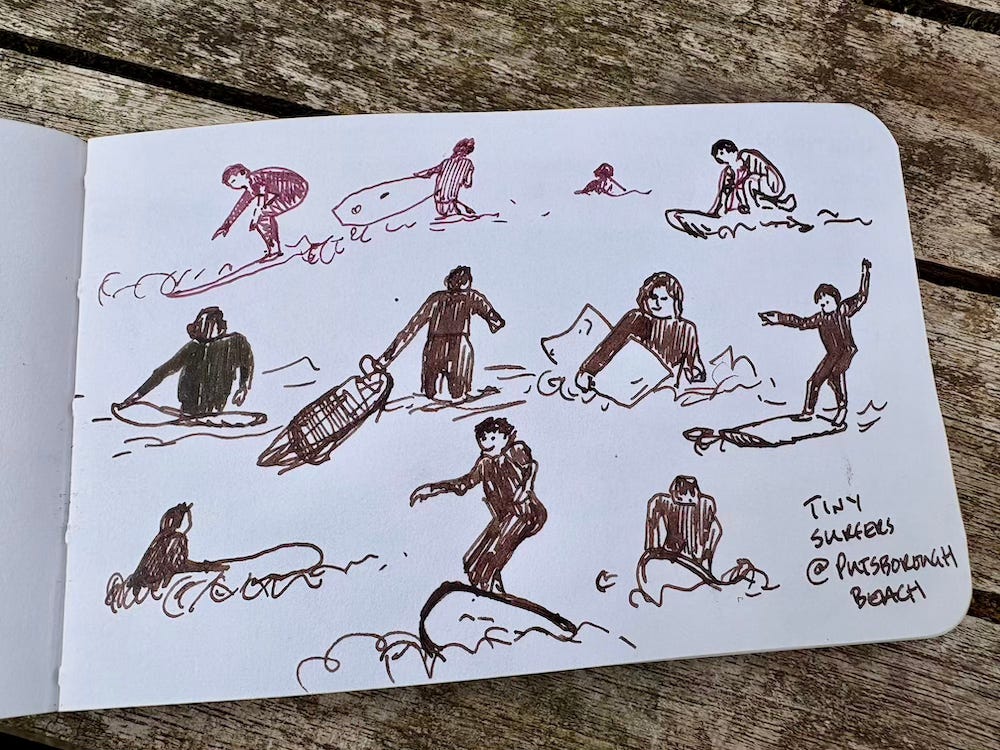 TINY
SURFERS
@ PUTSBOROUGH
BEACH